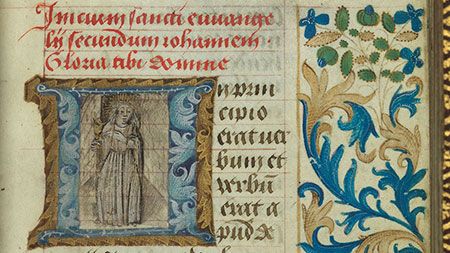 Inicium sancti euvange
lij secundum iohannem
Gloria tibi domine
In prin
cipio
erat ver
bum et
verbū
erat a
pud de